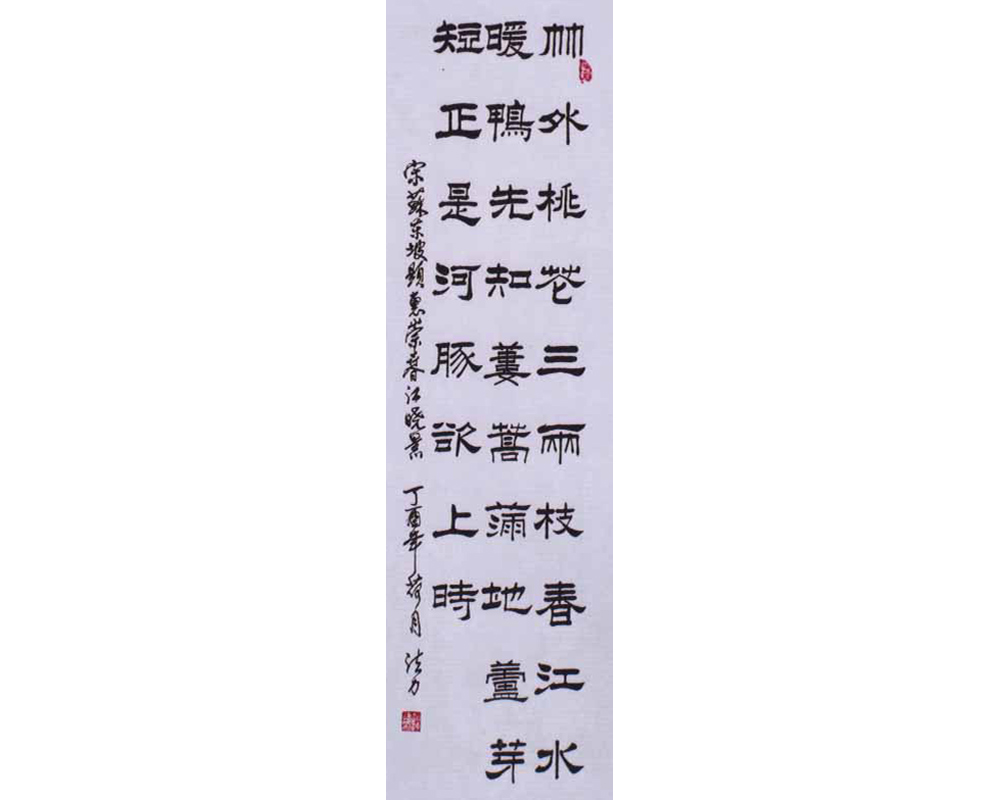 竹外桃花三兩枝春江水
暖鴨先知蔞蒿滿地蘆芽
短正是河豚欲上時
宋蘇东坡題惠崇春江晓景 丁酉年荷月 法力